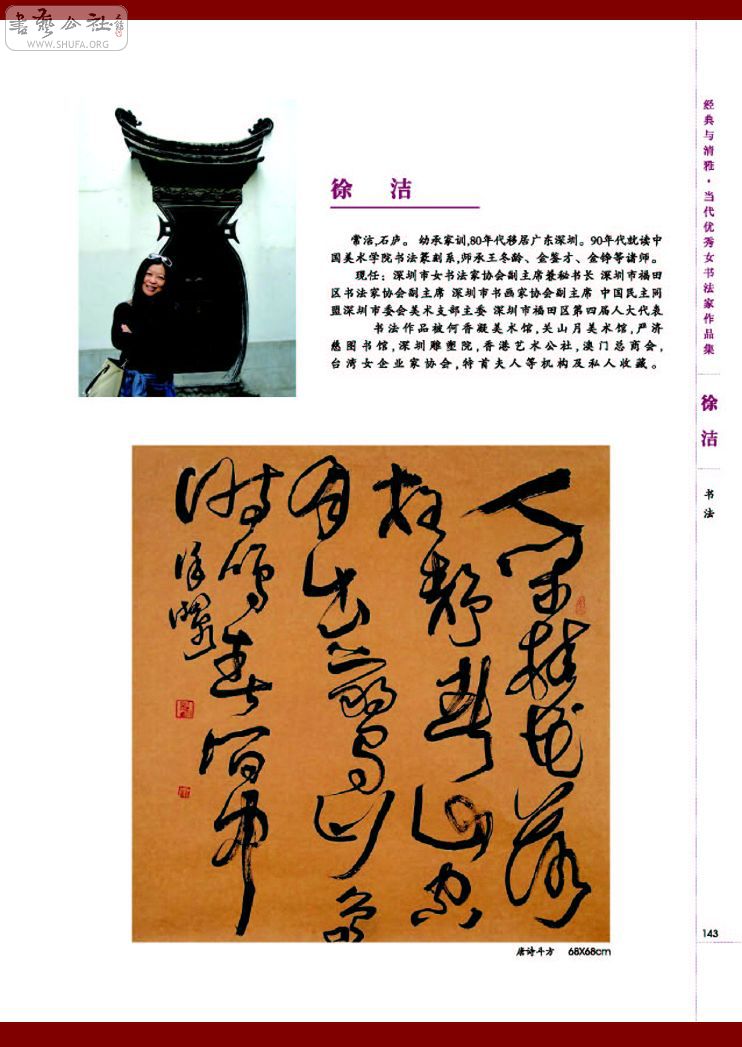 書藝公社
WWW.SHUFA.ORG
徐 洁
常洁,石庐。 幼承家训,80年代移居广东深圳。90年代就读中
国美术学院书法篆刻系,师承王冬龄、金鉴才、金铮等诸师。
现任：深圳市女书法家协会副主席兼秘书长 深圳市福田
区书法家协会副主席 深圳市书画家协会副主席 中国民主同
盟深圳市委会美术支部主委 深圳市福田区第四届人大代表
书法作品被何香凝美术馆,关山月美术馆,严济
慈图书馆,深圳雕塑院,香港艺术公社,澳门总商会,
台湾女企业家协会,特首夫人等机构及私人收藏。
经典与清雅·当代优秀女书法家作品集
徐 洁
书法
人閒桂花落
夜靜春山空
月出驚山鳥
時鳴春澗中
徐潔
唐诗斗方 68X68cm
143